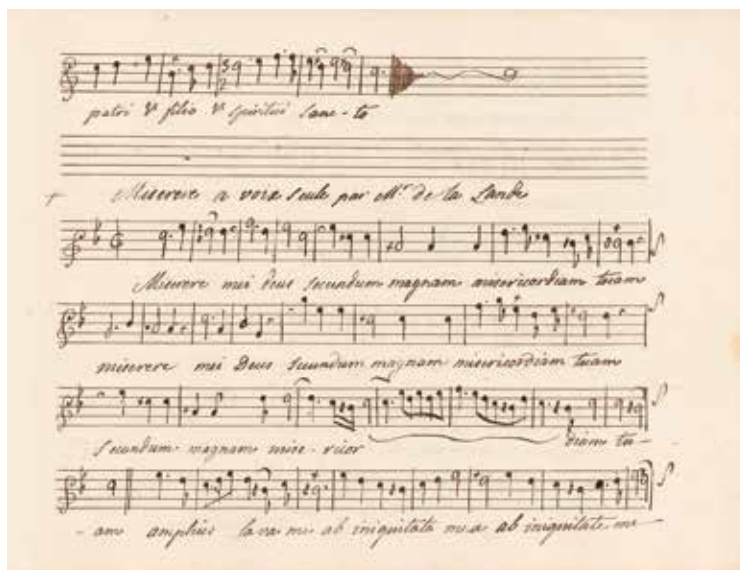 patri & filio & spiritui sanc-to
Miserere a voix seule par Mr. de la Lande
Miserere mei deus secundum magnam misericordiam tuam
miserere mei Deus secundum magnam misericordiam tuam
secundum magnam mise-ricor diam tu-
-am amplius lava me ab iniquitate mea ab iniquitate me